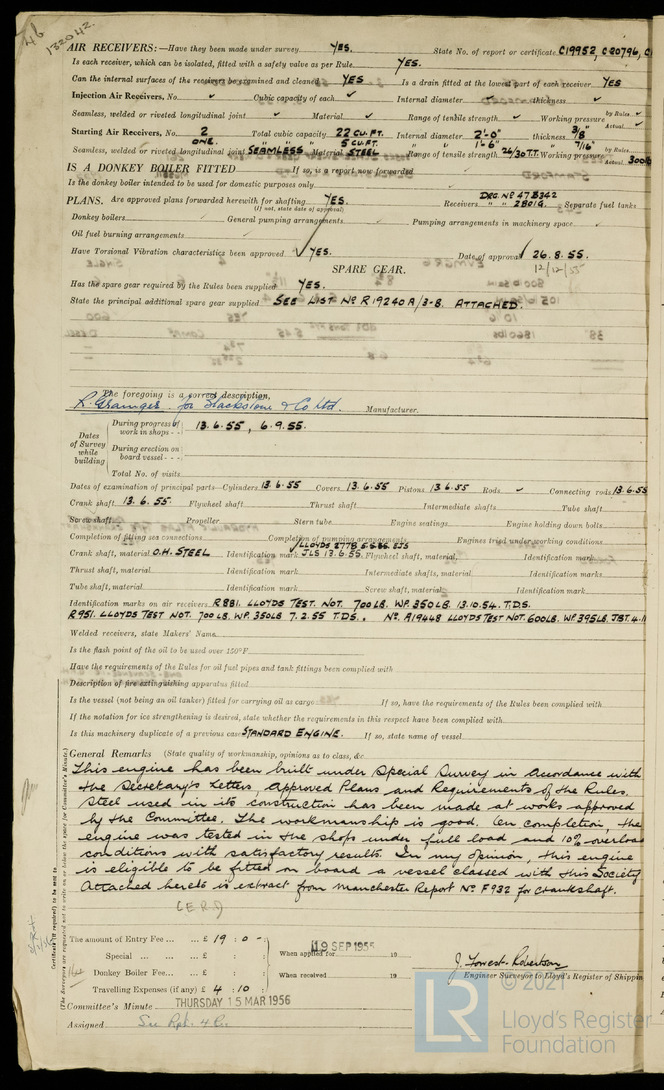 46
132042.
AIR RECEIVERS:—Have they been made under survey YES. State No. of report or certificate C19952, C20796, C1
Is each receiver, which can be isolated, fitted with a safety valve as per Rule YES.
Can the internal surfaces of the receivers be examined and cleaned YES Is a drain fitted at the lowest part of each receiver YES
Injection Air Receivers, No. ✓ Cubic capacity of each ✓ Internal diameter ✓ thickness ✓
Seamless, welded or riveted longitudinal joint ✓ Material ✓ Range of tensile strength ✓ Working pressure by Rules ✓ Actual ✓
Starting Air Receivers, No. 2 Total cubic capacity 22 CU.FT. Internal diameter 2'-0" thickness 3/8"
ONE. " " " 5 CU.FT. " " 1'-6" " 7/16"
Seamless, welded or riveted longitudinal joint SEAMLESS Material STEEL Range of tensile strength 26/30 T.T. Working pressure by Rules ✓ Actual 300lb
IS A DONKEY BOILER FITTED If so, is a report now forwarded
Is the donkey boiler intended to be used for domestic purposes only
PLANS. Are approved plans forwarded herewith for shafting YES. Receivers DRG. Nº 47B342 Separate fuel tanks
(If not, state date of approval) " " 2801G.
Donkey boilers General pumping arrangements Pumping arrangements in machinery space
Oil fuel burning arrangements
Have Torsional Vibration characteristics been approved YES. Date of approval 26.8.55.
12/12/55
SPARE GEAR.
Has the spare gear required by the Rules been supplied YES.
State the principal additional spare gear supplied SEE LIST Nº R19240A/3-B. ATTACHED.
The foregoing is a correct description,
R. Grainger. for Blackstone & Co Ltd. Manufacturer.
Dates of Survey while building
During progress of work in shops - - 13.6.55, 6.9.55.
During erection on board vessel - - -
Total No. of visits
Dates of examination of principal parts—Cylinders 13.6.55 Covers 13.6.55 Pistons 13.6.55 Rods ✓ Connecting rods 13.6.55
Crank shaft 13.6.55. Flywheel shaft Thrust shaft Intermediate shafts Tube shaft
Screw shaft Propeller Stern tube Engine seatings Engine holding down bolts
Completion of fitting sea connections Completion of pumping arrangements Engines tried under working conditions
Crank shaft, material O.H. STEEL Identification mark JLS 13.6.55. Flywheel shaft, material, Identification mark
Thrust shaft, material Identification mark Intermediate shafts, material Identification marks
Tube shaft, material Identification mark Screw shaft, material Identification mark
Identification marks on air receivers R881. LLOYDS TEST. NOT. 700LB. WP. 350LB. 13.10.54. T.D.S.
R951. LLOYDS TEST NOT. 700 LB. WP. 350LB 7.2.55 T.D.S., Nº A19448 LLOYDS TEST NOT. 600LB. WP 395LB. JBT. 4.11
Welded receivers, state Makers' Name
Is the flash point of the oil to be used over 150°F
Have the requirements of the Rules for oil fuel pipes and tank fittings been complied with
Description of fire extinguishing apparatus fitted
Is the vessel (not being an oil tanker) fitted for carrying oil as cargo If so, have the requirements of the Rules been complied with
If the notation for ice strengthening is desired, state whether the requirements in this respect have been complied with
Is this machinery duplicate of a previous case STANDARD ENGINE. If so, state name of vessel
General Remarks (State quality of workmanship, opinions as to class, &c
This engine has been built under Special Survey in accordance with
the Secretary's Letters, Approved Plans and Requirements of the Rules.
Steel used in its construction has been made at works approved
by the Committee. The workmanship is good. On completion, the
engine was tested in the shops under full load and 10% overload
conditions with satisfactory results. In my opinion, this engine
is eligible to be fitted on board a vessel classed with this Society
Attached hereto is extract from Manchester Report Nº F932 for Crankshaft.
(E.R.J)
The amount of Entry Fee ... ... £ 19 : 0 -
Special ... ... £ : :
Donkey Boiler Fee... ... £ : :
Travelling Expenses (if any) £ 4 : 10
When applied for 19 SEP 1955 19
When received 19
J. Forrest-Robertson
Engineer Surveyor to Lloyd's Register of Shippin
Committee's Minute THURSDAY 15 MAR 1956
Assigned See Rpt. 4
Certificate (if required) to be sent to
(The Surveyors are requested not to write on or below the space for Committee's Minute.)
LR
© 2021
Lloyd's Register
Foundation